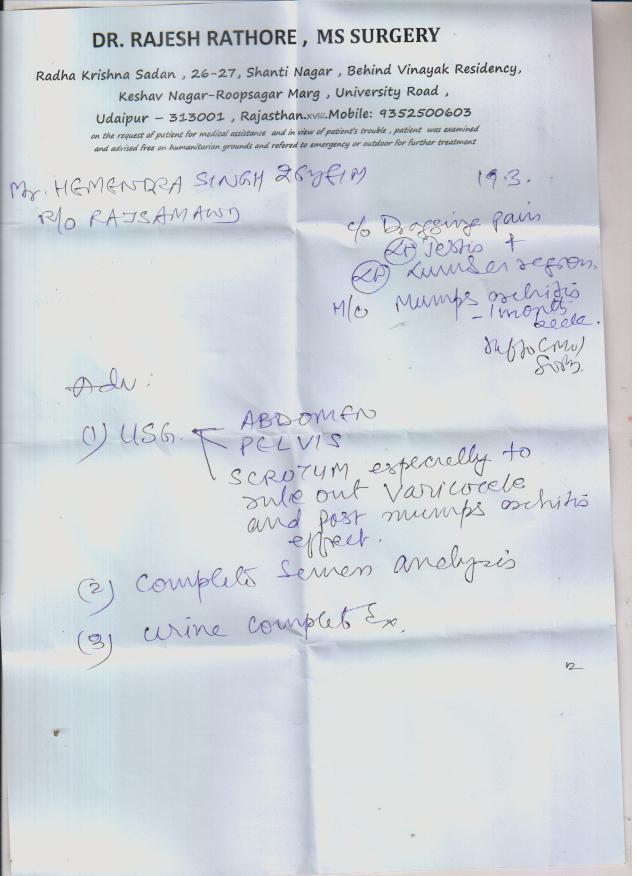 DR. RAJESH RATHORE , MS SURGERY
Radha Krishna Sadan , 26-27, Shanti Nagar , Behind Vinayak Residency,
Keshav Nagar-Roopsagar Marg , University Road ,
Udaipur – 313001 , Rajasthan.xviii.Mobile: 9352500603
on the request of patient for medical assistance and in view of patient's trouble , patient was examined
and advised free on humanitarian grounds and refered to emergency or outdoor for further treatment
Mr. HEMENDRA SINGH 26y M
19.3.
R/O RAJSAMAND
c/o Dragging pain
Testis +
Lumber region.
H/o Mumps orchitis
- 1 month
back.
Adv:
(1) USG. ABDOMEN
PELVIS
SCROTUM especially to
rule out Varicocele
and post mumps orchitis
effect.
(2) complete Semen analysis
(3) urine complet Ex.